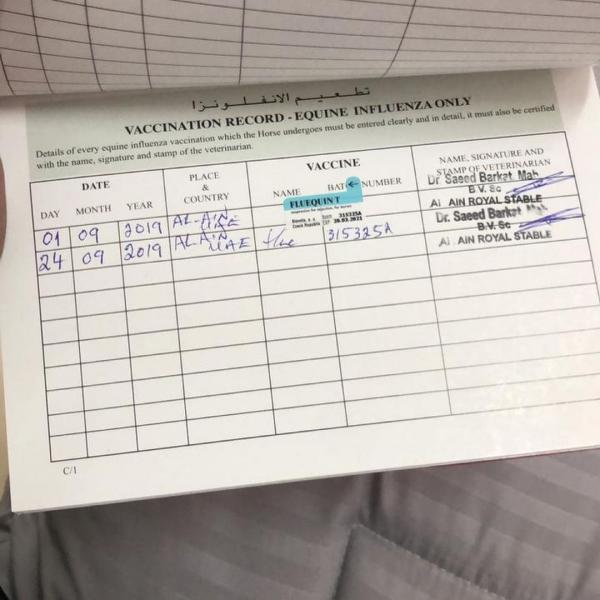 تطعيم الانفلونزا
VACCINATION RECORD - EQUINE INFLUENZA ONLY
Details of every equine influenza vaccination which the Horse undergoes must be entered clearly and in detail, it must also be certified
with the name, signature and stamp of the veterinarian.
DATE
PLACE
&
COUNTRY
VACCINE
NAME, SIGNATURE AND
STAMP OF VETERINARIAN
DAY MONTH YEAR
NAME BATCH NUMBER
01 09 2019 AL-AIN UAE
FLUEQUIN T
suspension for injection, for horses
Bioveta, a. s. 315325A
Czech Republic EXP 20.03.2021
Dr Saeed Barkat Mah
B.V. Sc
Al AIN ROYAL STABLE
24 09 2019 AL-AIN UAE flue 315325A
Dr. Saeed Barkat
B.V. Sc
Al AIN ROYAL STABLE
C/1